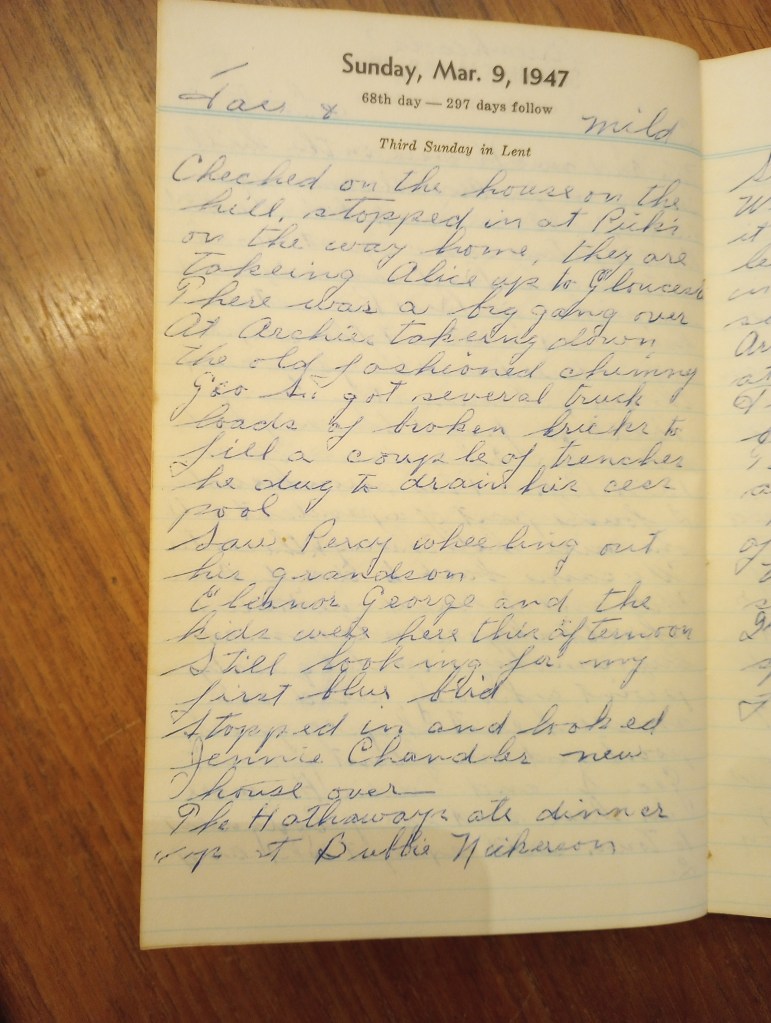 Sunday, Mar. 9, 1947
68th day — 297 days follow
Fair & mild
Third Sunday in Lent
Checked on the house on the
hill, stopped in at Pick's
on the way home, they are
takeing Alice up to Glouces
There was a big gang over
At Archies takeing down
the old fashioned chimny
Geo got several truck
loads of broken bricks to
fill a couple of trenches
he dug to drain his cess
pool
Saw Percy wheeling out
his grandson
Eleanor George and the
kids were here this afternoon
Still looking for my
first blue bird
Stopped in and looked
Jennie Chandler new
house over
The Hathaways ate dinner
up at Bubbie Nickerson